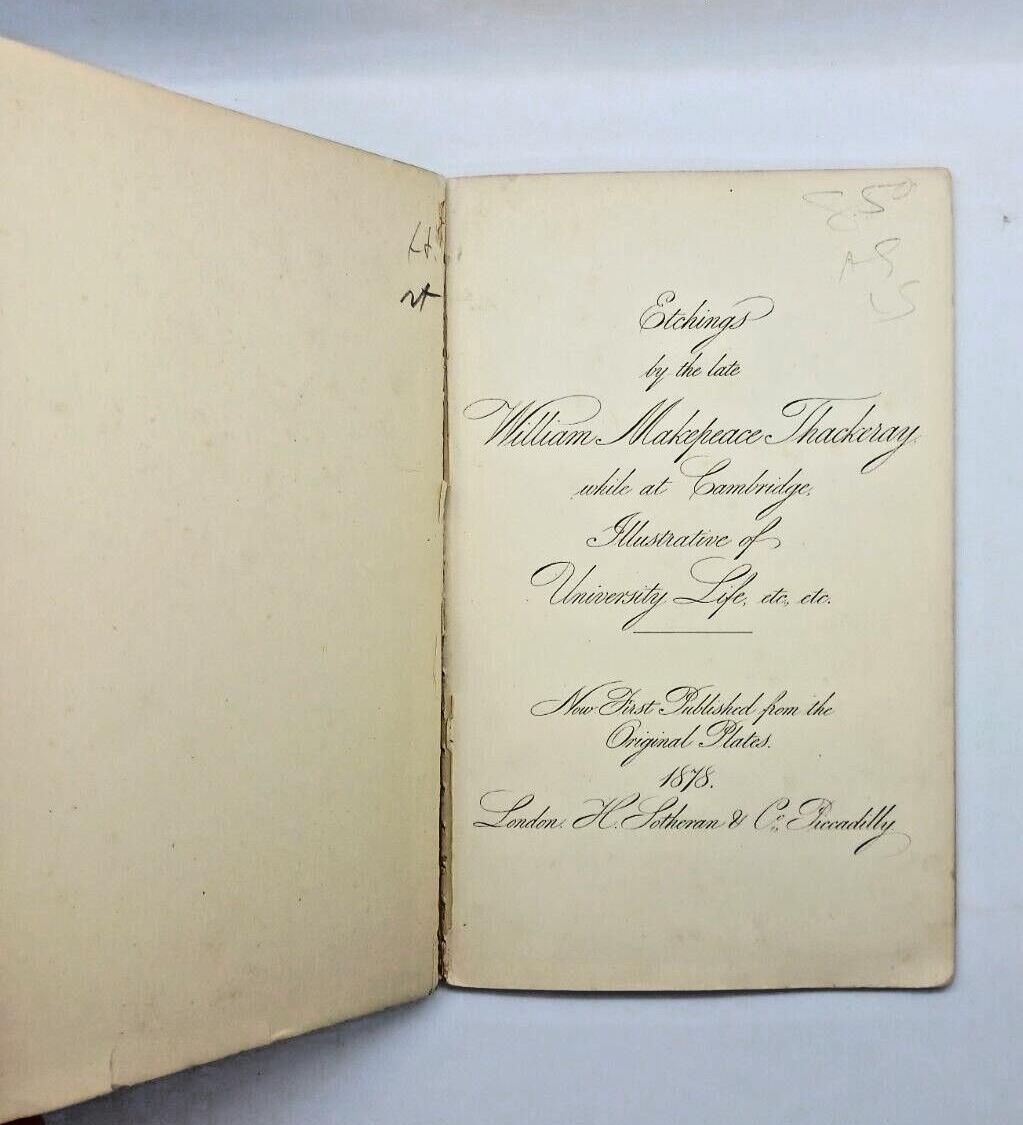 8.50
Etchings
by the late
William Makepeace Thackeray
while at Cambridge,
Illustrative of
University Life, etc., etc.
Now First Published from the
Original Plates.
1878.
London. H. Sotheran & Co. Piccadilly